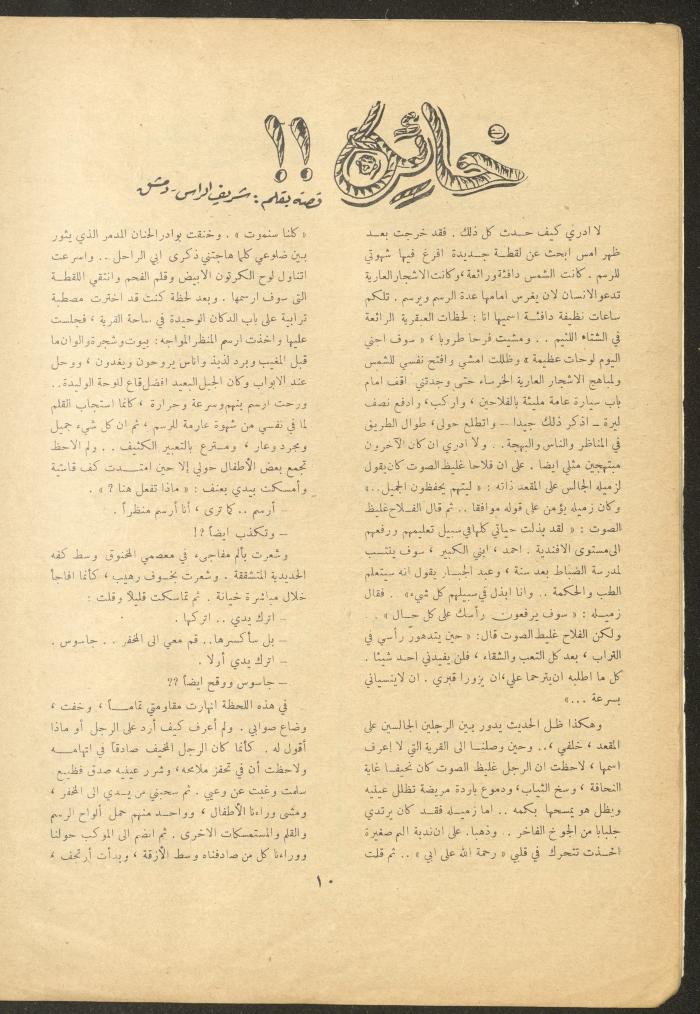 خائن !!
قصة بقلم : شريف الراس - دمشق
لا ادري كيف حدث كل ذلك . فقد خرجت بعد
ظهر امس ابحث عن لقطة جديدة افرغ فيها شهوتي
للرسم . كانت الشمس دافئة ورائعة ، وكانت الاشجار العارية
تدعو الانسان لان يغرس امامها عدة الرسم ويرسم . تلكم
ساعات نظيفة دافئة اسميها انا : لحظات العبقرية الرائعة
في الشتاء اللئيم . . ومشيت فرحا طروبا ، « سوف اجني
اليوم لوحات عظيمة » وظللت امشي وافتح نفسي للشمس
ولمباهج الاشجار العارية الخرساء حتى وجدتني اقف امام
باب سيارة عامة مليئة بالفلاحين ، واركب ، وادفع نصف
ليرة – اذكر ذلك جيدا – واتطلع حولي ، طوال الطريق
في المناظر والناس والبهجة . . ولا ادري ان كان الآخرون
مبتهجين مثلي ايضا . على ان فلاحا غليظ الصوت كان يقول
لزميله الجالس على المقعد ذاته : « ليتهم يحفظون الجميل .. »
وكان زميله يؤمن على قوله موافقا .. ثم قال الفلاح غليظ
الصوت : « لقد بذلت حياتي كلها في سبيل تعليمهم ورفعهم
الى مستوى الافندية . احمد ، ابني الكبير ، سوف ينتسب
لمدرسة الضباط بعد سنة ، وعبد الجبار يقول انه سيتعلم
الطب والحكمة .. وانا ابذل في سبيلهم كل شيء » . فقال
زميله : « سوف يرفعون رأسك على كل حال » . .
ولكن الفلاح غليظ الصوت قال : « حين يتدهور رأسي في
التراب ، بعد كل التعب والشقاء ، فلن يفيدني احد شيئا .
كل ما اطلبه ان يترحما علي ، ان يزورا قبري . ان لا ينسياني
بسرعة ... »
وهكذا ظل الحديث يدور بين الرجلين الجالسين على
المقعد ، خلفي ، .. وحين وصلنا الى القرية التي لا اعرف
اسمها ، لاحظت ان الرجل غليظ الصوت كان نحيفا غاية
النحافة ، وسخ الثياب ، ودموع باردة مريضة تظلل عينيه
ويظل هو يمسحها بكمه .. اما زميله فقد كان يرتدي
جلبابا من الجوخ الفاخر . . وذهبا . على ان ندبة الم صغيرة
اخذت تتحرك في قلبي « رحمة الله على ابي » .. ثم قلت
« كلنا سنموت » . وخنقت بوادر الحنان المدمر الذي يثور
بين ضلوعي كلما هاجتني ذكرى ابي الراحل .. واسرعت
اتناول لوح الكرتون الابيض وقلم الفحم وانتقي اللقطة
التي سوف ارسمها . وبعد لحظة كنت قد اخترت مصطبة
ترابية على باب الدكان الوحيدة في ساحة القرية ، فجلست
عليها واخذت ارسم المنظر المواجه : بيوت وشجرة والوان ما
قبل المغيب وبرد لذيذ واناس يروحون ويغدون ، ووحل
عند الابواب وكان الجبل البعيد افضل قاع للوحة الوليدة ..
ورحت ارسم بنهم وسرعة وحرارة ، كانما استجاب القلم
لما في نفسي من شهوة عارمة للرسم ، ثم ان كل شيء جميل
ومجرد وعار ، ومترع بالتعبير الكثيف . . ولم الاحظ
تجمع بعض الأطفال حولي إلا حين امتدت كف قاسية
وأمسكت بيدي بعنف : « ماذا تفعل هنا ؟ » .
– أرسم .. كما ترى ، أنا أرسم منظراً .
– وتكذب ايضاً ؟!
وشعرت بألم مفاجىء في معصمي المخنوق وسط كفه
الحديدية المتشققة . وشعرت بخوف رهيب ، كأنما افاجأ
خلال مباشرة خيانة . ثم تماسكت قليلاً وقلت :
– اترك يدي .. اتركها .
– بل سأكسرها .. قم معي الى المخفر . . جاسوس .
– اترك يدي أولا .
– جاسوس ووقح ايضاً ؟؟
في هذه اللحظة انهارت مقاومتي تماماً ، وخفت ،
وضاع صوابي . ولم أعرف كيف أرد على الرجل أو ماذا
أقول له . كأنما كان الرجل المخيف صادقاً في اتهامه
ولاحظت أن في تحفز ملامحه ، وشرر عينيه صدق فظيع
سامت وغبت عن وعيي . ثم سحبني من يدي الى المخفر ،
ومشى وراءنا الأطفال ، وواحد منهم حمل ألواح الرسم
والقلم والمستمسكات الاخرى . ثم انضم الى الموكب حولنا
ووراءنا كل من صادفناه وسط الأزقة ، وبدأت أرتجف ،
١٠